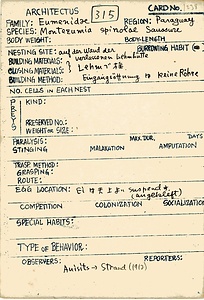 ARCHITECTUS 315 CARD No.
FAMILY: Eumenidae REGION: Paraguay
SPECIES: Montezumia spinolae Saussure
BODY WEIGHT: BODY-LENGTH
NESTING SITE: auf der Wand der verlassenen Lehmhütte BURROWING HABIT (
BUILDING MATERIALS:
CLOSING MATERIALS: Lehm
BUILDING METHOD: Eingangsöffnung keine Röhre
NO. CELLS IN EACH NEST
PREYS KIND:
PRESERVED NO.:
WEIGHT OR SIZE:
PARALYSIS: MAX. DUR. DAYS
STINGING MALAXATION AMPUTATION
TRASP. METHOD:
GRASPING:
ROUTE:
EGG LOCATION: Ei suspend
COMPETITION COLONIZATION SOCIALIZATION
SPECIAL HABITS:
TYPE OF BEHAVIOR:
OBSERVERS: REPORTERS:
Anisits → Strand (1912)